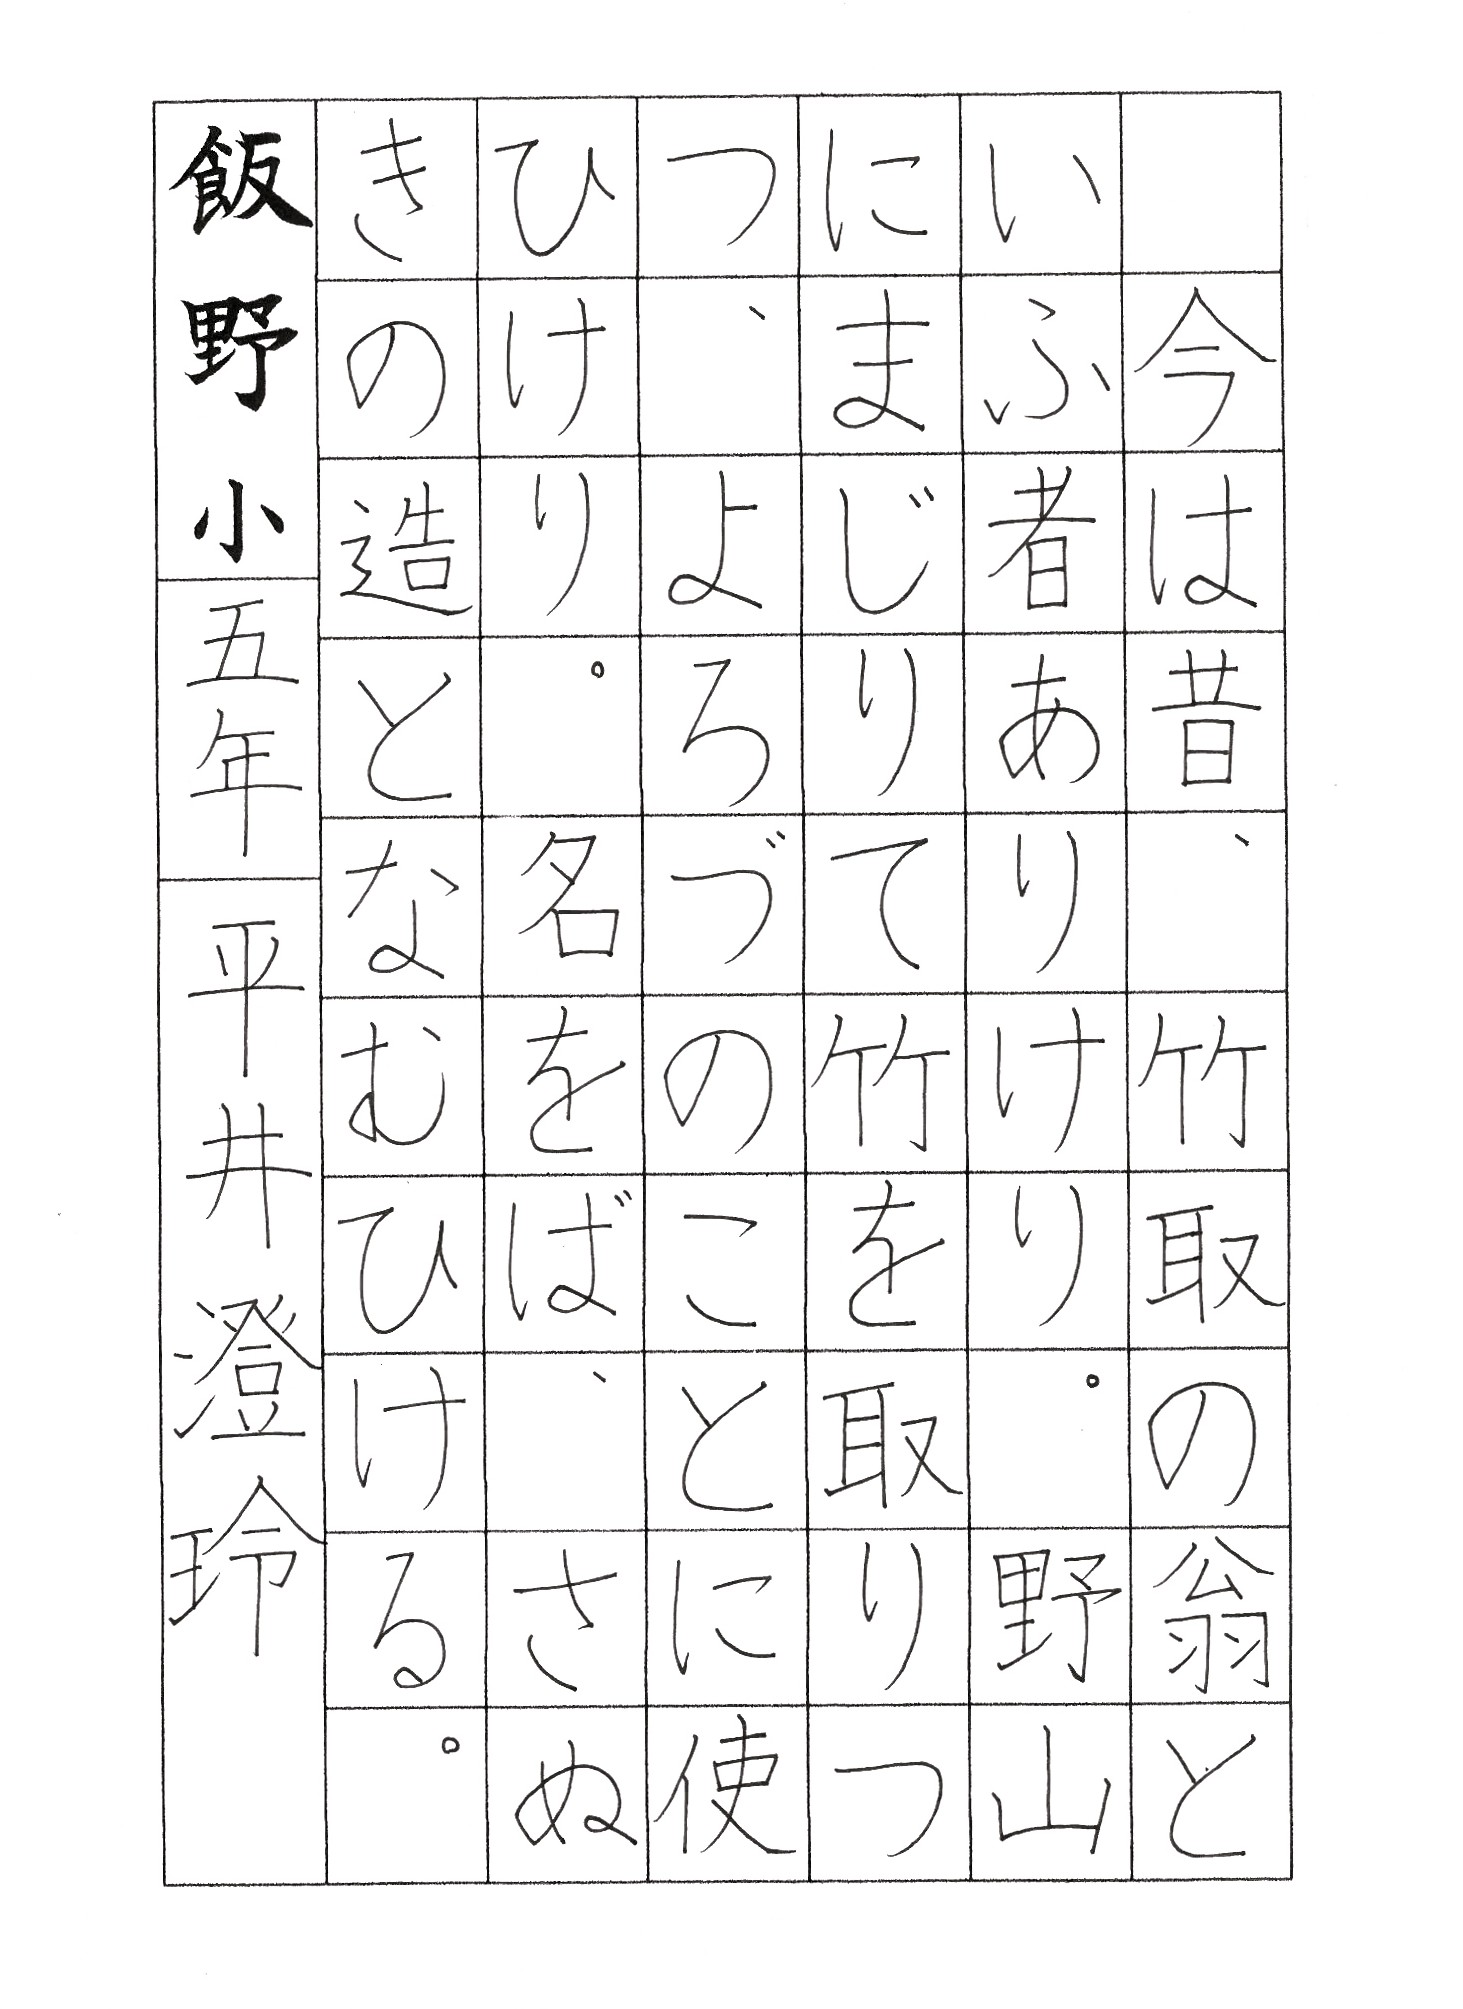 今は昔、竹取の翁と
いふ者ありけり。野山
にまじりて竹を取りつ
つ、よろづのことに使
ひけり。名をば、さぬ
きの造となむひける。
飯野小 五年 平井澄玲